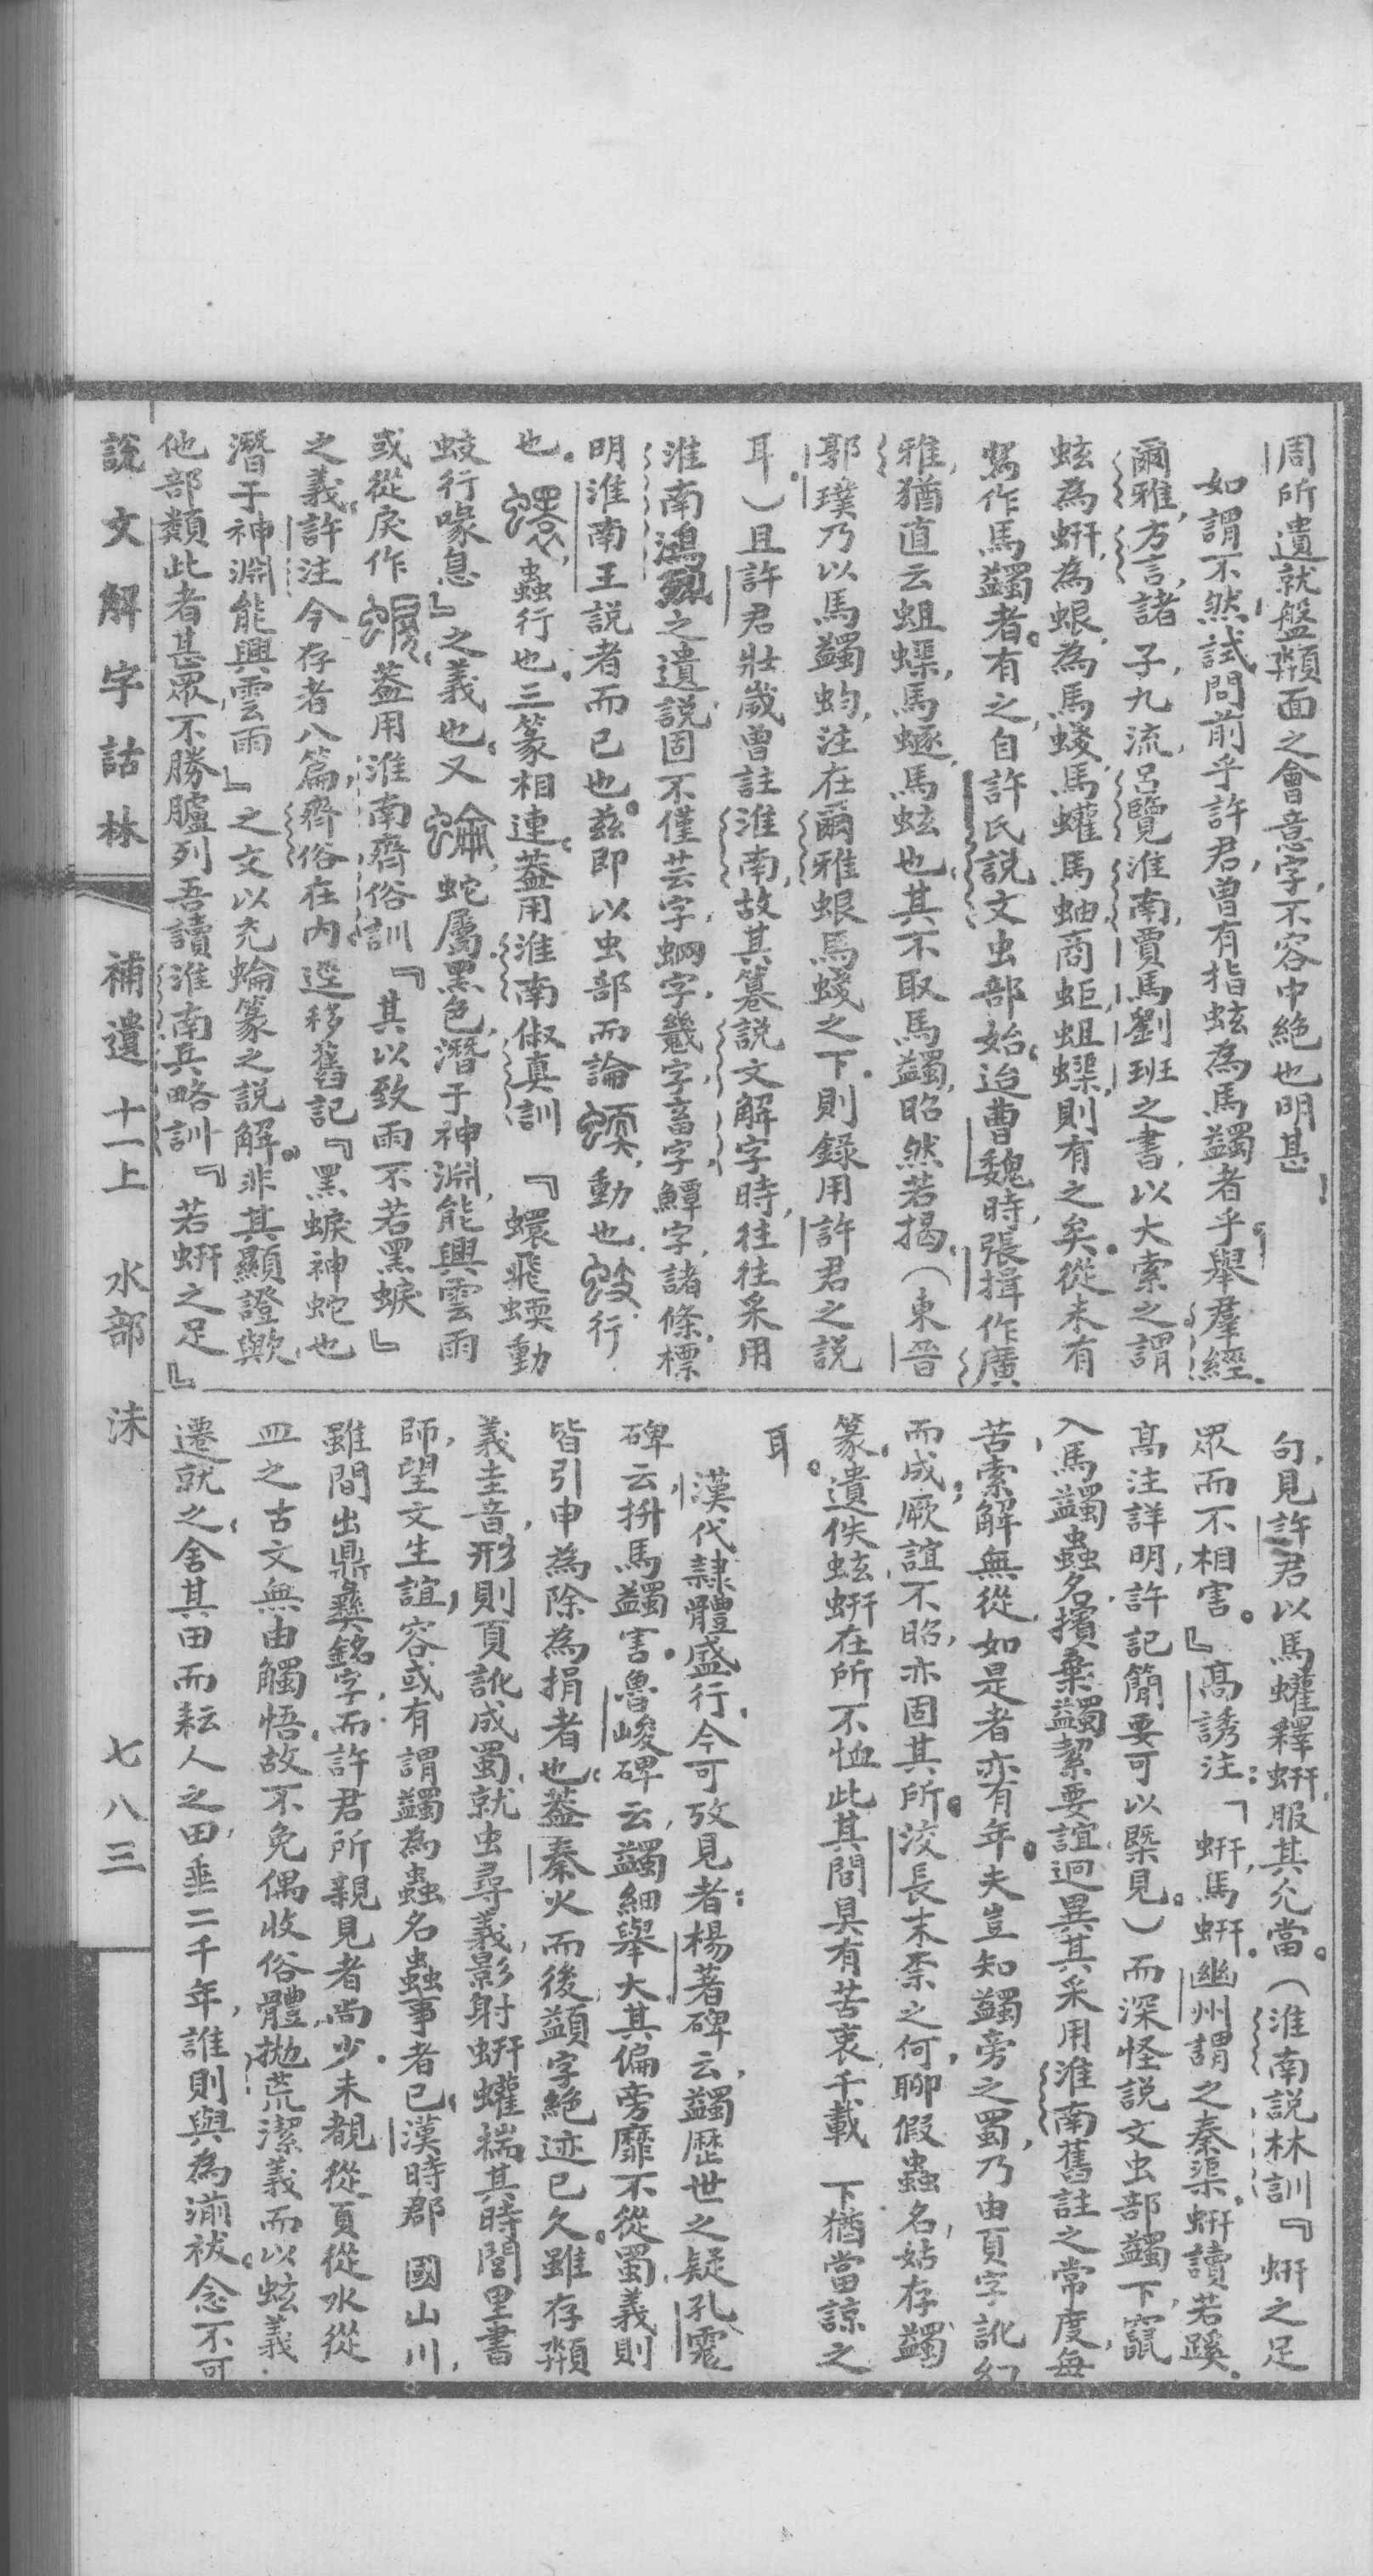 周所遺就盤頮面之會意字不容中絕也明甚
如謂不然試問前乎許君曾有指蚿為馬蠲者乎舉羣經
爾雅方言諸子九流呂覽淮南賈馬劉班之書以大索之謂
蚿為蚈為蛝為馬蝬馬蠸馬蚰商蚷蛆蟝則有之矣從未有
寫作馬蠲者有之自許氏說文虫部始迨曹魏時張揖作廣
雅猶直云蛆蟝馬蝬馬蚿也其不取馬蠲昭然若揭（東晉
郭璞乃以馬蠲蚐注在爾雅蛝馬蝬之下則錄用許君之說
耳）且許君壯歲曾註淮南故其篹說文解字時往往采用
淮南鴻烈之遺說固不僅芸字蛧字鬾字畜字鱓字諸條標
明淮南王說者而已也茲即以虫部而論蝡動也蚑行
也蠉蟲行也三篆相連蓋用淮南俶真訓『蠉飛蝡動
蚑行喙息』之義也又蜦蛇屬黑色潛于神淵能興雲雨
或從戾作蜧蓋用淮南齊俗訓『其以致雨不若黑蜧』
之義許注今存者八篇齊俗在內迻移舊記『黑蜧神蛇也
潛于神淵能興雲雨』之文以充蜦篆之說解非其顯證歟
他部類此者甚眾不勝臚列吾讀淮南兵略訓『若蚈之足』
句見許君以馬蠸釋蚈服其允當（淮南說林訓『蚈之足
眾而不相害』高誘注「蚈馬蚈幽州謂之秦渠蚈讀若蹊
高注詳明許記簡要可以槩見）而深怪說文虫部蠲下竄
入馬蠲蟲名擯棄蠲絜要誼迥異其采用淮南舊註之常度每
苦索解無從如是者亦有年夫豈知蠲旁之蜀乃由頁字訛幻
而成厥誼不昭亦固其所洨長末柰之何聊假蟲名姑存蠲
篆遺佚蚿蚈在所不恤此其間具有苦衷千載下猶當諒之
耳
漢代隸體盛行今可攷見者楊著碑云蠲歷世之疑孔霮
碑云拚馬蠲害魯峻碑云蠲細舉大其偏旁靡不從蜀義則
皆引申為除為捐者也蓋秦火而後蠲字絕迹已久雖存頮
義圭音形則頁訛成蜀就虫尋義影射蚈蠸揣其時閭里書
師望文生誼容或有謂蠲為蟲名蟲事者已漢時郡國山川
雖間出鼎彝銘字而許君所親見者尚少未覩從頁從水從
皿之古文無由觸悟故不免偶收俗體拋荒潔義而以蚿義
遷就之舍其田而耘人之田垂二千年誰則與為湔祓念不可
說文解字詁林　補遺十一上　水部　沬　七八三